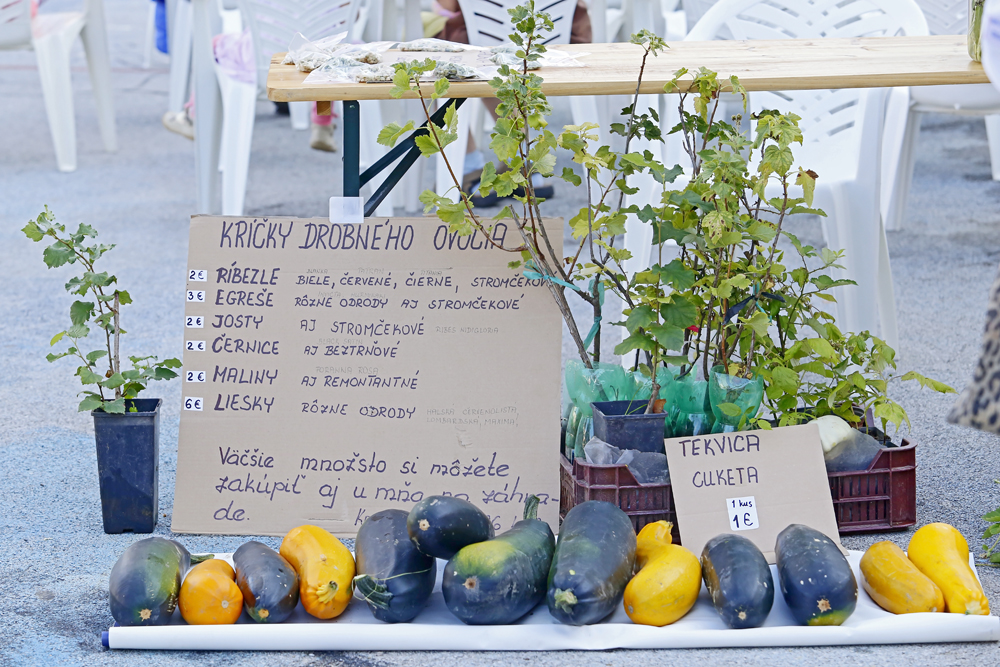 KRÍČKY DROBNÉHO OVOCIA
2€ RÍBEZLE BIELE, ČERVENÉ, ČIERNE, STROMČEKOVÉ
3€ EGREŠE RÔZNE ODRODY AJ STROMČEKOVÉ
2€ JOSTY AJ STROMČEKOVÉ
2€ ČERNICE AJ BEZTRŇOVÉ
2€ MALINY AJ REMONTANTNÉ
6€ LIESKY RÔZNE ODRODY
Väčšie množsto si môžete
zakúpiť aj u mňa na záhra-
de.
TEKVICA
CUKETA
1 kus
1€